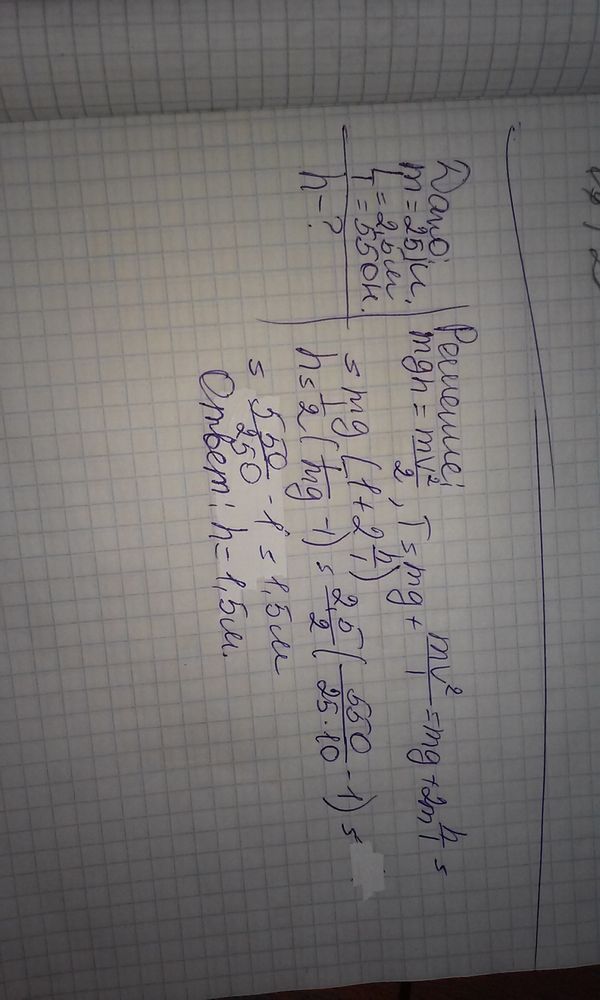 Дано:
m = 25 кг,
L = 2,5 м
T = 550 н.
h - ?
Решение:
mgh = mv²/2, T = mg + mv²/l = mg + 2m h/l =
= mg (1 + 2 h/l)
h = l/2 (T/mg - 1) = 2,5/2 (550/25·10 - 1) =
= 550/250 - 1 = 1,5 м
Ответ: h = 1,5 м.